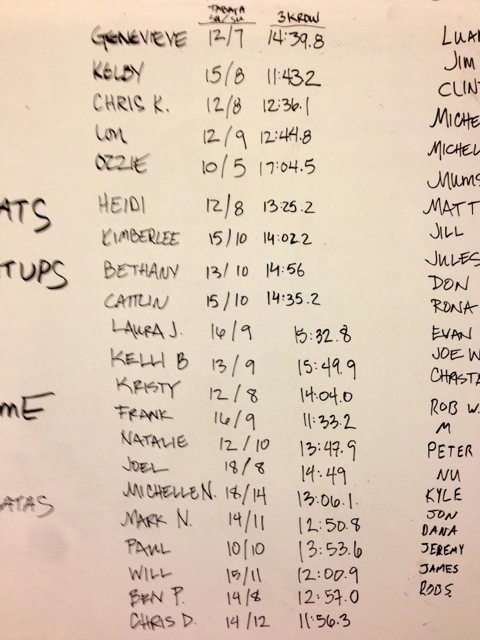 TABATA 3K ROW
SQ/SU
GENEVIEVE 12/7 14:39.8
KELBY 15/8 11:43.2
CHRIS K. 12/8 12:36.1
LORI 12/9 12:44.8
OZZIE 10/5 17:04.5
HEIDI 12/8 13:25.2
KIMBERLEE 15/10 14:02.2
BETHANY 13/10 14:56
CAITLIN 15/10 14:35.2
LAURA J. 16/9 15:32.8
KELLI B 13/9 15:49.9
KRISTY 12/8 14:04.0
FRANK 16/9 11:33.2
NATALIE 12/10 13:47.9
JOEL 18/8 14:49
MICHELLE N. 18/14 13:06.1
MARK N. 14/11 12:50.8
PAUL 10/10 13:53.6
WILL 15/11 12:00.9
BEN P. 14/8 12:57.0
CHRIS D. 14/12 11:56.3
ATS
TUPS
ME
ATAS
LUA
JIM
CLIN
MICHE
MICHEL
MUMS
MATT
JILL
JULES
DON
RONA
EVAN
JOE W
CHASTA
ROB W.
M
PETER
NU
KYLE
JON
DANA
JEREMY
JAMES
ROBS